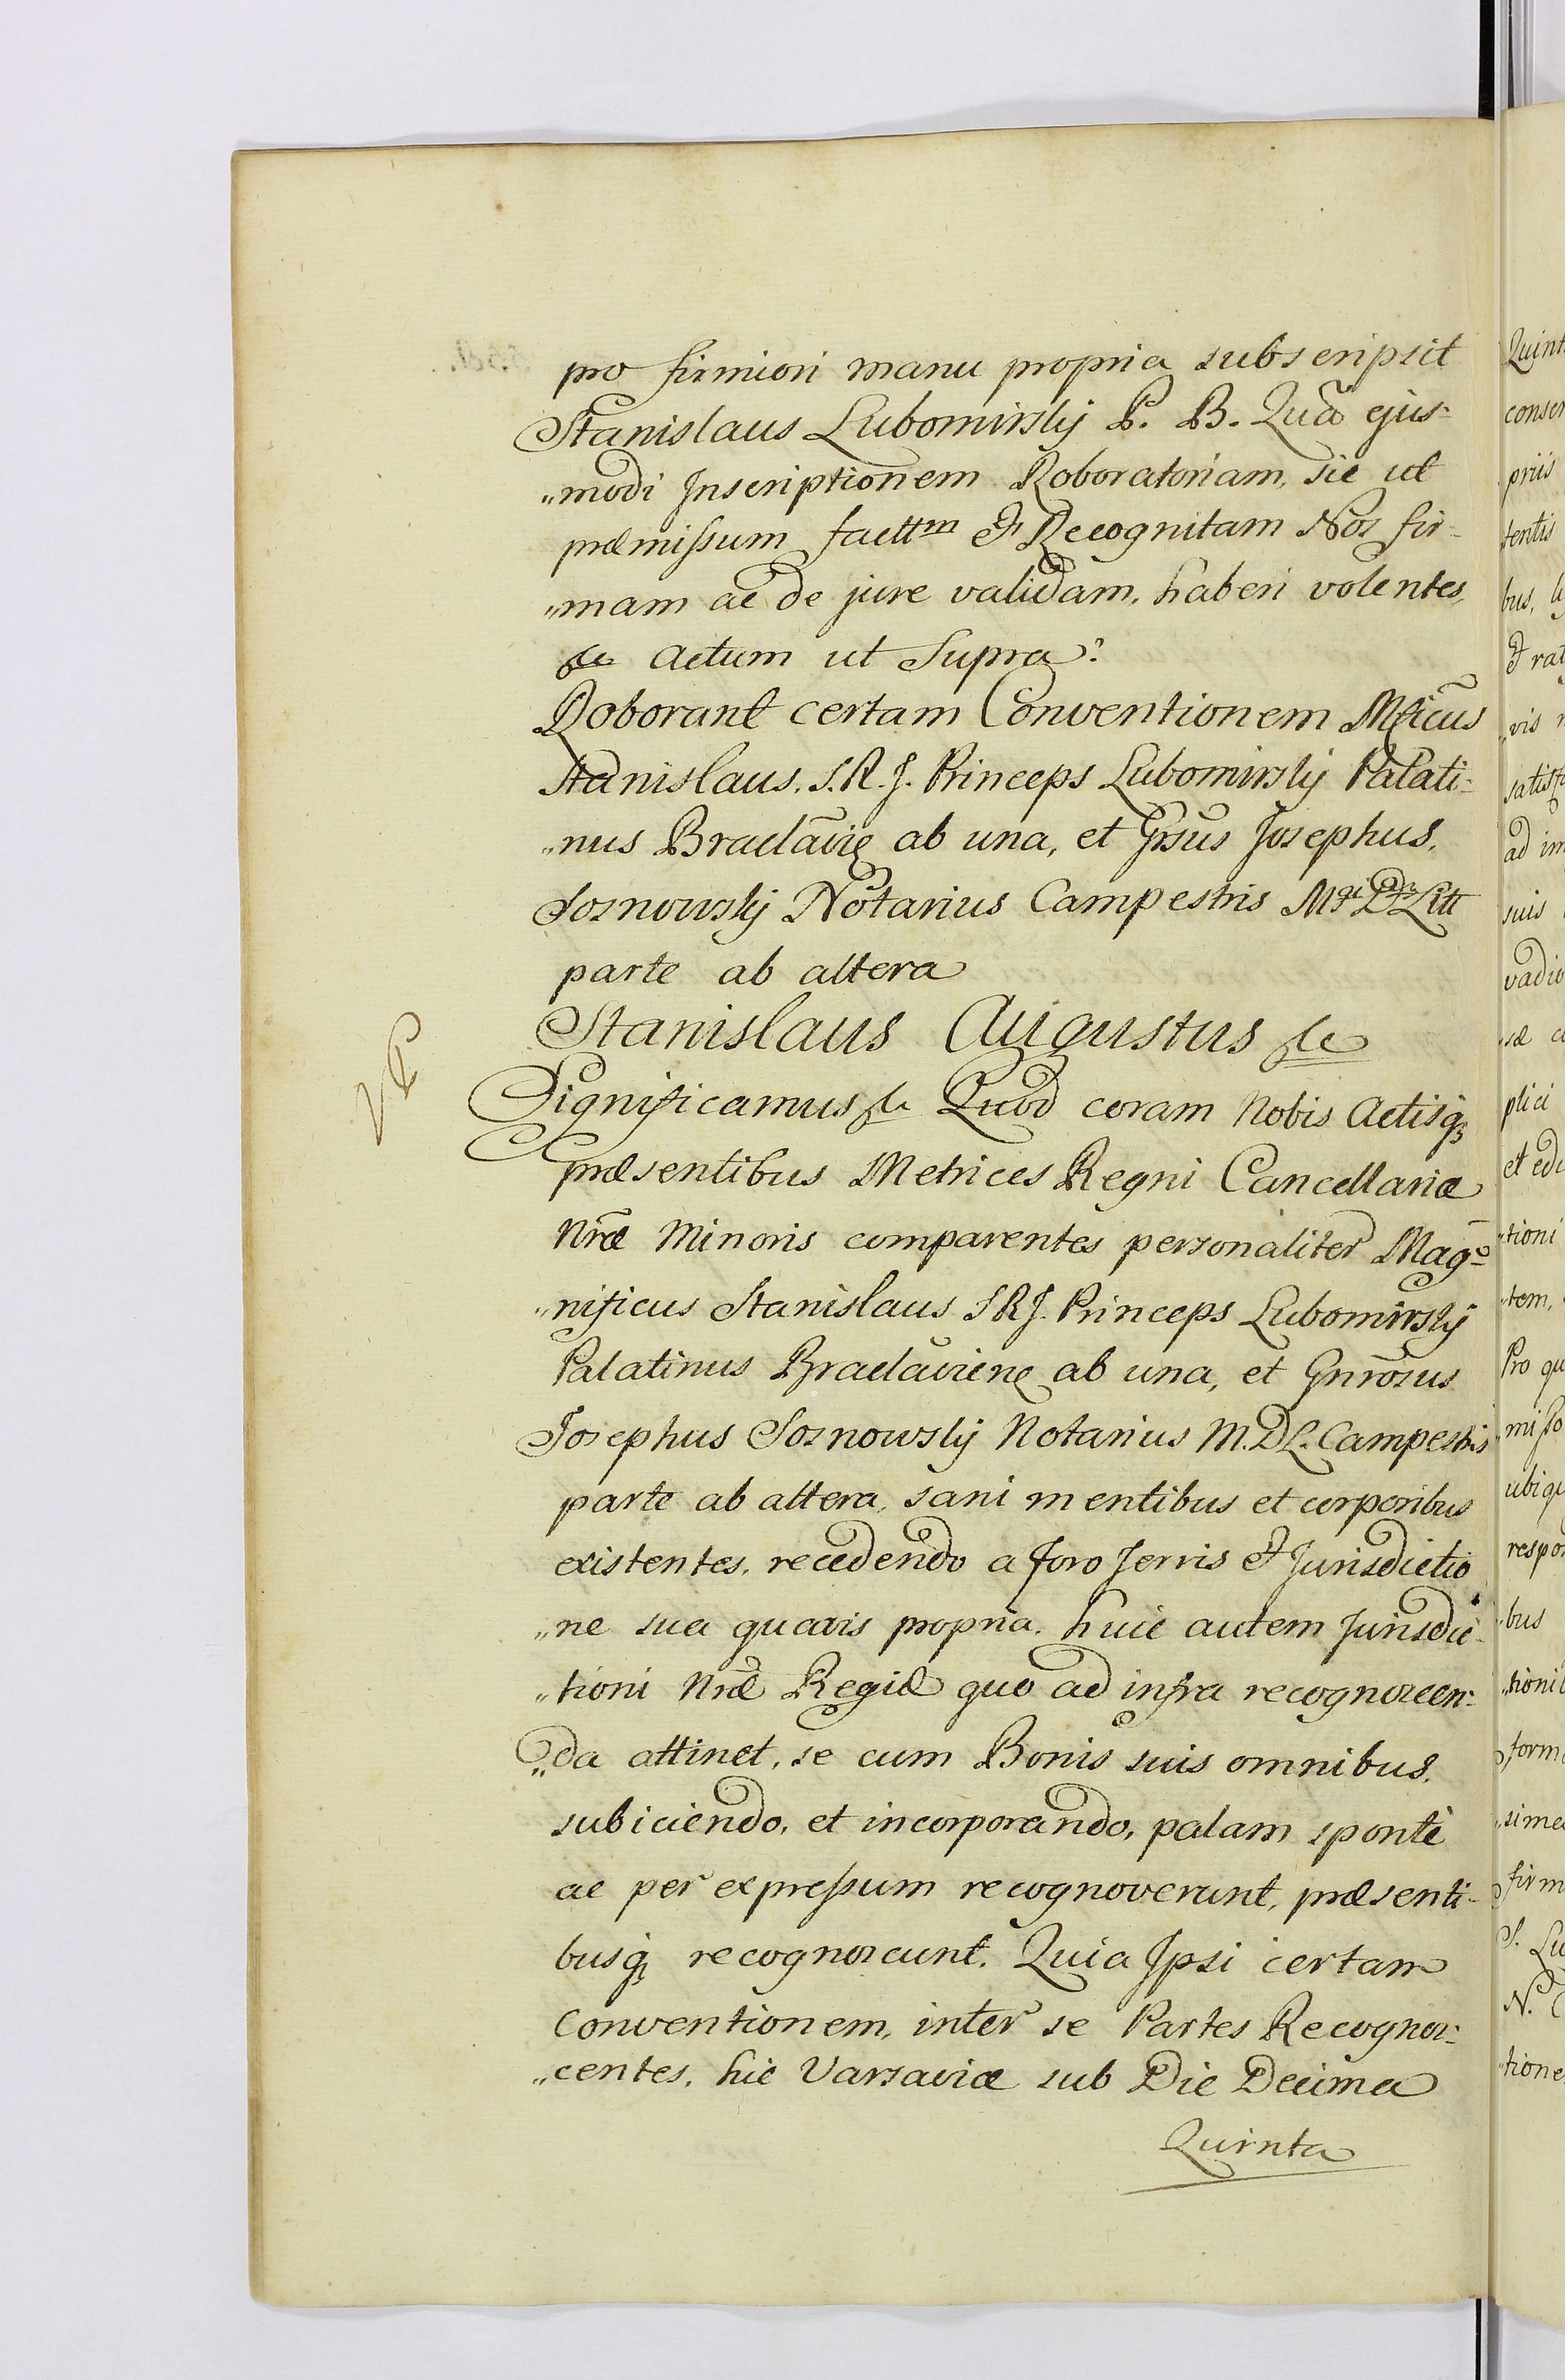 pro firmiori manu propria subscripsit
Stanislaus Lubomirskj P. B. Quã ejus-
„modi Inscriptionem Roboratoriam, sic ut
præmissum factt^m et Recognitam Nos fir-
„mam ac de jure validam, haberi volentes,
Actum ut Supra.
Roborant certam Conventionem Mficus
Stanislaus. S. R. J. Princeps Lubomirskj Palati-
„nus Braclãviæ ab una, et Grsus Josephus.
Sosnowskj Notarius Campestris M^gi D Litt
parte ab altera
Stanislaus Augustus &c
VP
Significamus &c Quod coram Nobis Actisq;
præsentibus Metrices Regni Cancellariæ
Nræ Minoris comparentes personaliter Mag-
„nificus Stanislaus S R J. Princeps Lubomirskj
Palatinus Braclãviene ab una, et Gnrosus
Josephus Sosnowskj Notarius M. D L. Campestris
parte ab altera, sani mentibus et corporibus
existentes, recedendo a foro Terris et Jurisdictio
„ne sua quavis propria. huic autem Jurisdic-
„tioni Nræ Regiæ quo ad infra recognoscen-
„da attinet, se cum Bonis suis omnibus.
subiciendo, et incorporando, palam sponte
ac per expressum recognoverunt, præsenti-
busq; recognoscunt. Quia Ipsi certam
Conventionem, inter se Partes Recognos-
„centes, hic Varsaviæ sub Die Decima
Quinta